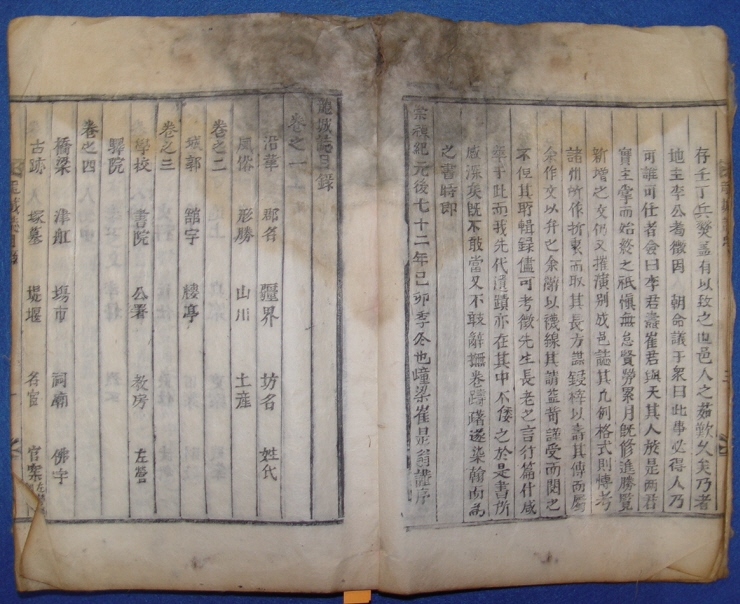 存壬丁兵燹盖有以致之也邑人之茹歎久矣乃者
地主李公爲徵因 朝命議于衆曰此事必得人乃
可誰可仕者僉曰李君壽崔君與天其人於是兩君
實主掌而始終之祇愼無怠賢勞累月旣修進勝覽
新增之文仍又摧演別成邑誌其凡例格式則博考
諸州所作折衷而取其長方謀鋟梓以壽其傳而屬
余作文以弁之余辭以襪線其請益苛謹受而閱之
不但其聨輯録儘可考徵先生長老之言行篇什咸
萃乎此而我先代潰蹟亦在其中不佞之於是書所
感深矣旣不敢當又不敢辭撫卷躊躇遂染翰而爲
之書時卽
崇禎紀元後七十二年己卯季冬也 梁崔是翁謹序
龍城誌目録
卷之一上
沿革 郡名 疆界 坊名 姓氏
風俗 形勝 山川 土産
卷之二
城郭 舘宇 樓亭
卷之三
學校 書院 公署 教房 左營
驛院
卷之四
橋梁 津舡 塲市 祠廟 佛宇
古跡 塚墓 堤堰 名官 官案